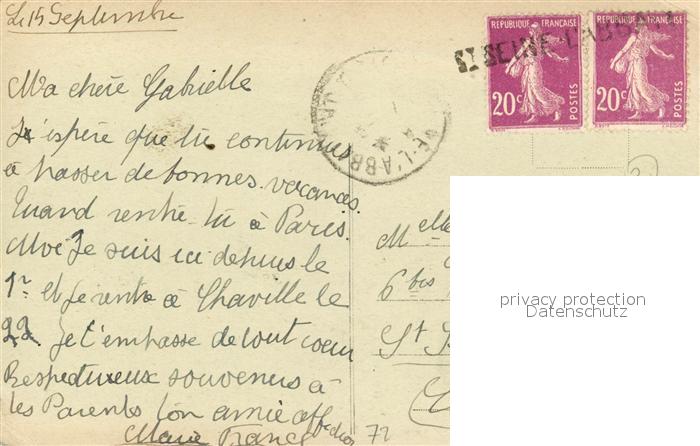 Le 15 Septembre
Ma chère Gabrielle
J'espère que tu continues
à passer de bonnes vacances.
Quand rentre-tu à Paris.
Moi Je suis ici depuis le
1er et je rentre à Chaville le
22. Je t'embrasse de tout coeur
Respectueux souvenirs à
tes Parents Ton amie aff
Marie France
72
REPUBLIQUE FRANÇAISE
20c POSTES
REPUBLIQUE FRANÇAISE
20c POSTES
ST SEINE-L'ABBAYE
E-L'ABB
Melle
6bis
St
privacy protection
Datenschutz